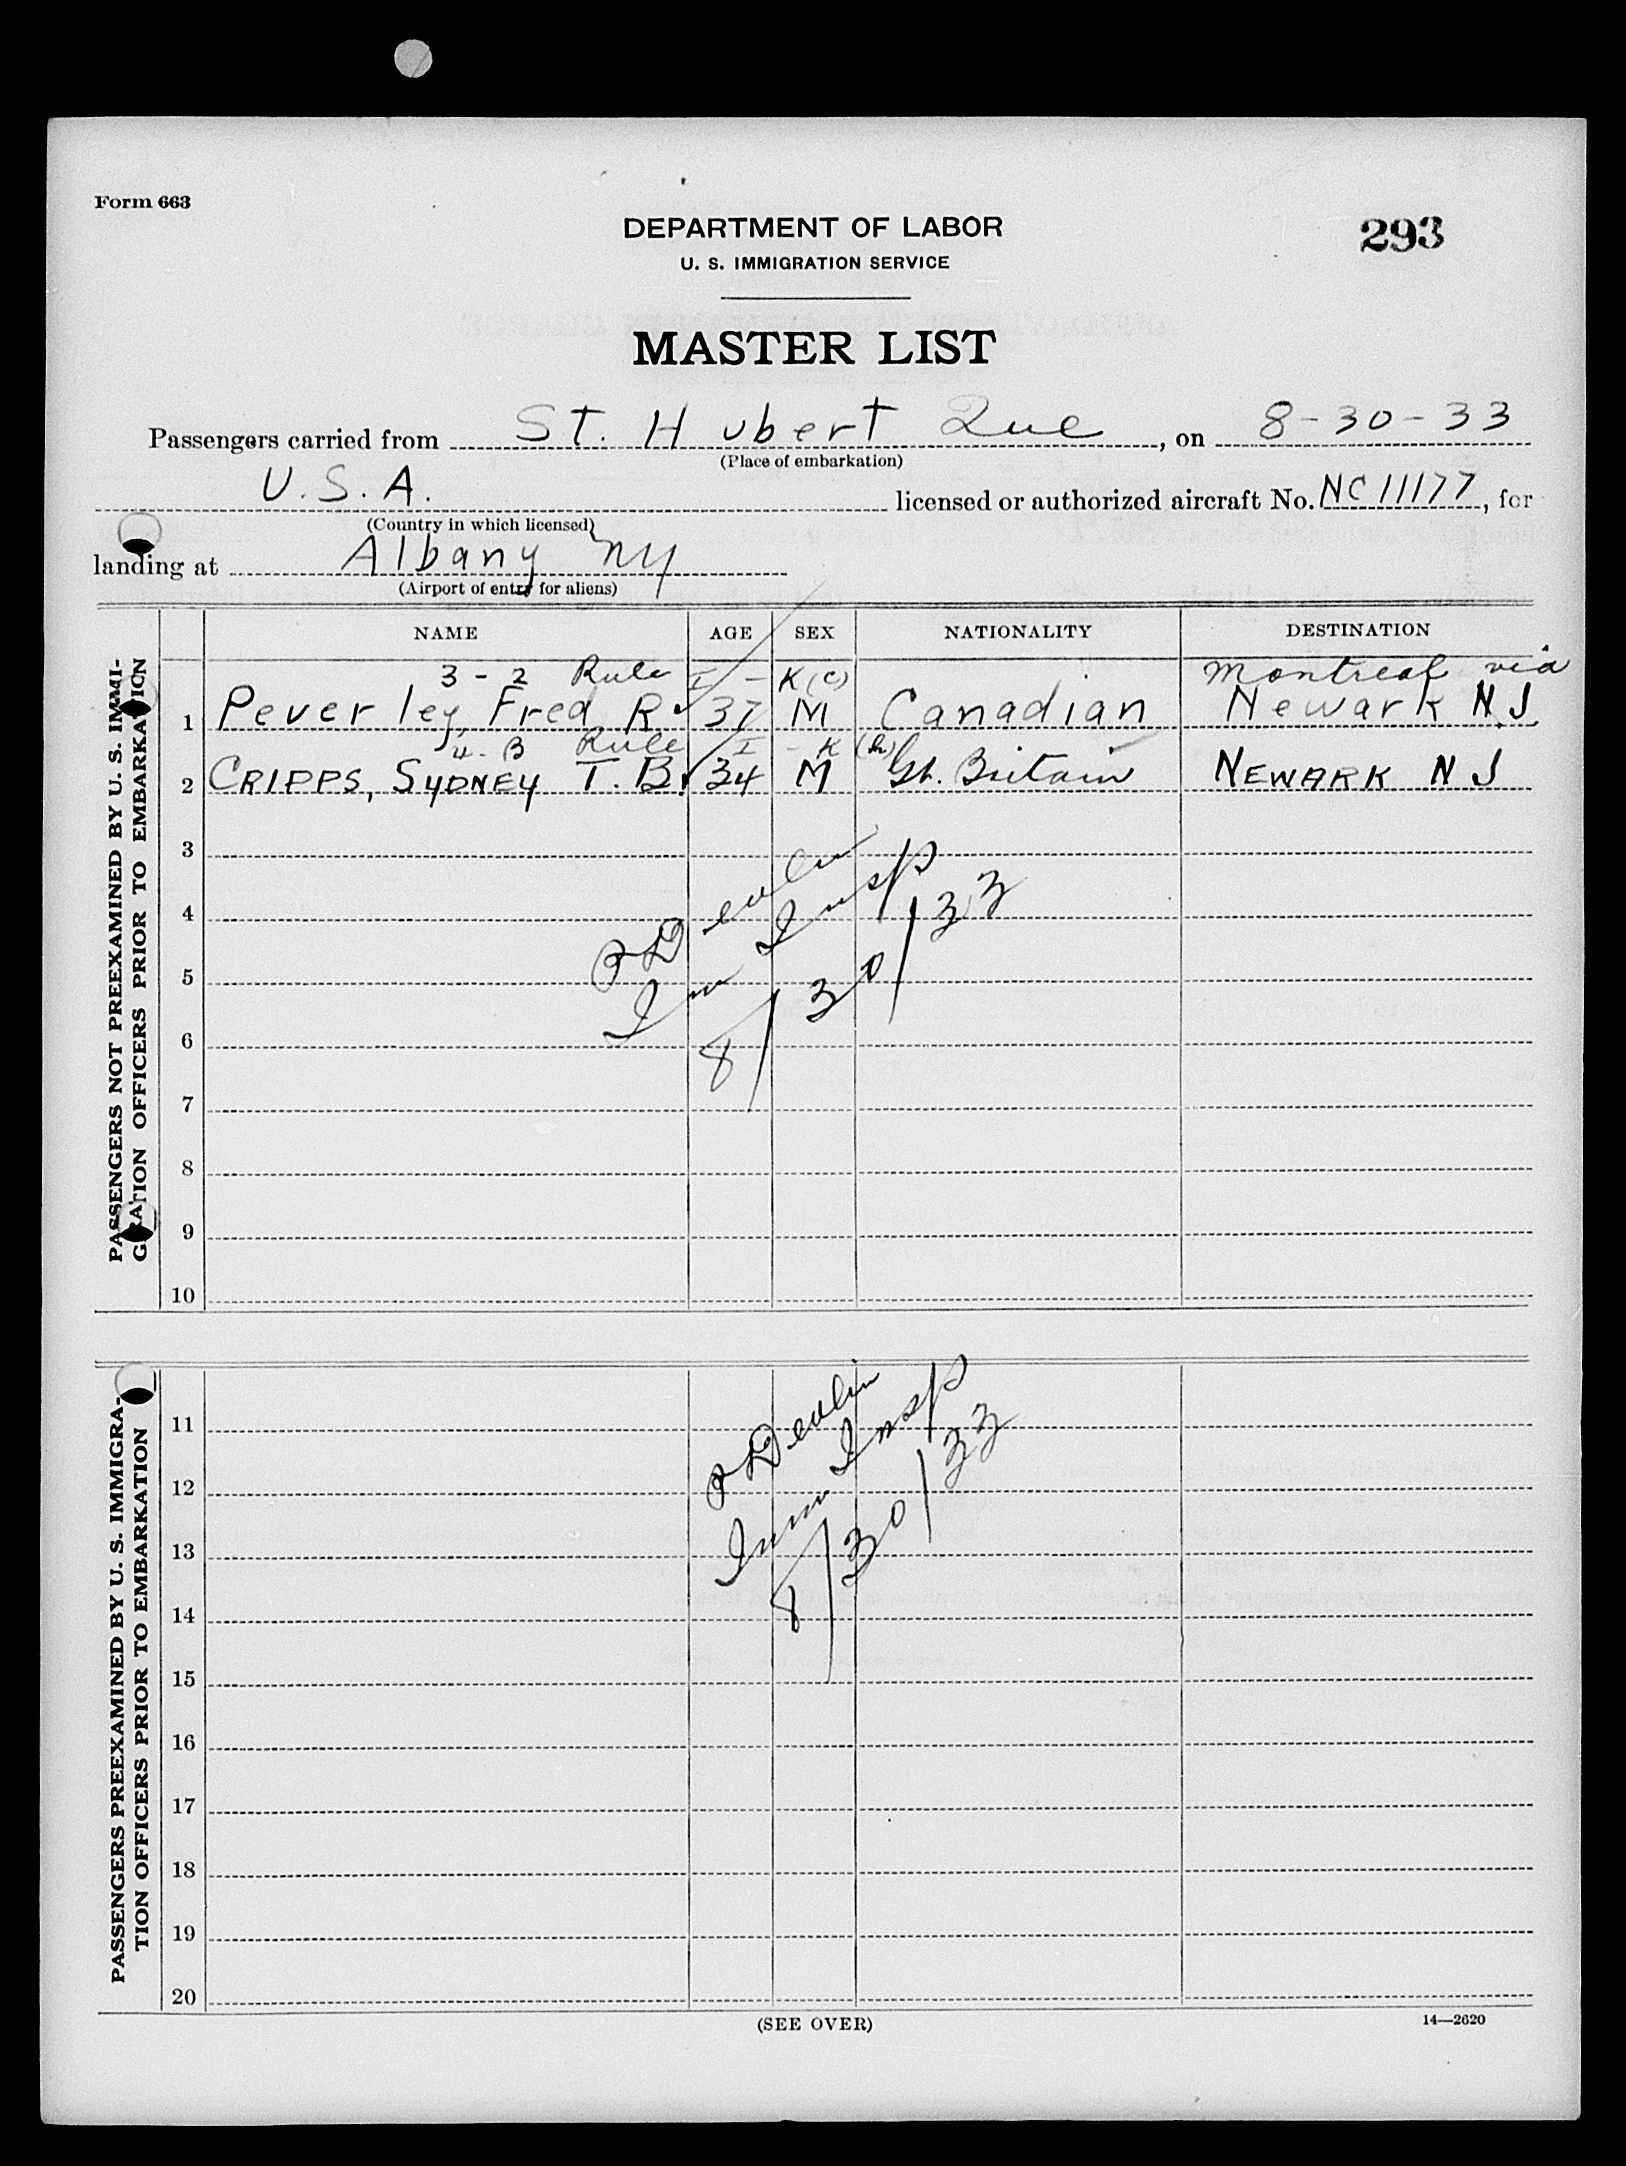 Form 663
DEPARTMENT OF LABOR
293
U. S. IMMIGRATION SERVICE
MASTER LIST
Passengers carried from St. Hubert Que, on 8-30-33
(Place of embarkation)
U.S.A. licensed or authorized aircraft No. NC 11177, for
(Country in which licensed)
landing at Albany NY
(Airport of entry for aliens)
NAME AGE SEX NATIONALITY DESTINATION
3-2 Rule I - K(c) Montreal via
1 Peverley, Fred R. 37 M Canadian Newark N.J.
4-B Rule I - K
2 CRIPPS, SYDNEY T. B. 34 M Gt. Britain NEWARK N J
3
4
5
6
7
8
9
10
Devlin
Im Insp
8/30/33
PASSENGERS NOT PREEXAMINED BY U. S. IMMI-
GRATION OFFICERS PRIOR TO EMBARKATION
11
12
13
14
15
16
17
18
19
20
Devlin
Imm Insp
8/30/33
PASSENGERS PREEXAMINED BY U. S. IMMIGRA-
TION OFFICERS PRIOR TO EMBARKATION
(SEE OVER)
14—2620